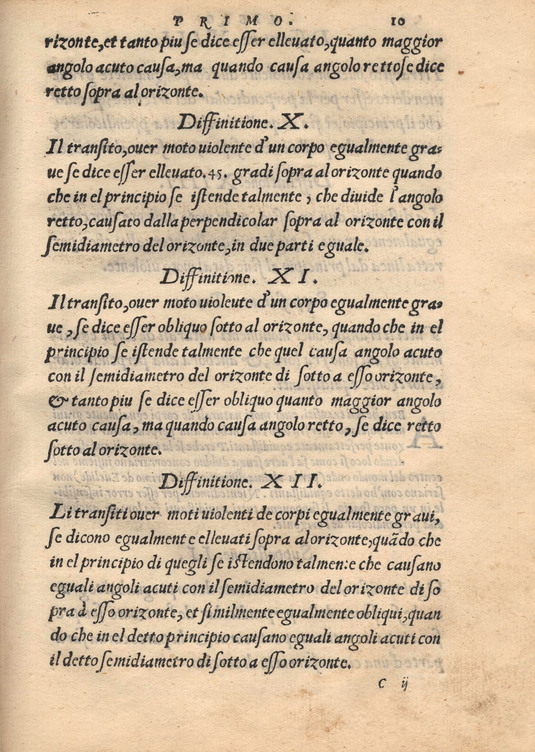 PRIMO. 10
rizonte, et tanto piu se dice esser elleuato, quanto maggior
angolo acuto causa, ma quando causa angolo retto se dice
retto sopra al orizonte.
Diffinitione. X.
Il transito, ouer moto uiolente d'un corpo egualmente gra-
ue se dice esser elleuato .45. gradi sopra al orizonte quando
che in el principio se istende talmente, che diuide l'angolo
retto, causato dalla perpendicolar sopra al orizonte con il
semidiametro del orizonte, in due parti eguale.
Diffinitione. XI.
Il transito, ouer moto uioleute d'un corpo egualmente gra-
ue, se dice esser obliquo sotto al orizonte, quando che in el
principio se istende talmente che quel causa angolo acuto
con il semidiametro del orizonte di sotto a esso orizonte,
& tanto piu se dice esser obliquo quanto maggior angolo
acuto causa, ma quando causa angolo retto, se dice retto
sotto al orizonte.
Diffinitione. XII.
Li transiti ouer moti uiolenti de corpi egualmente graui,
se dicono egualmente elleuati sopra al orizonte, quãdo che
in el principio di quegli se istendeno talmen:e che causano
eguali angoli acuti con il semidiametro del orizonte di so
pra à esso orizonte, et similmente egualmente obliqui, quan
do che in el detto principio causano eguali angoli acuti con
il detto semidiametro di sotto a esso orizonte.
C ij